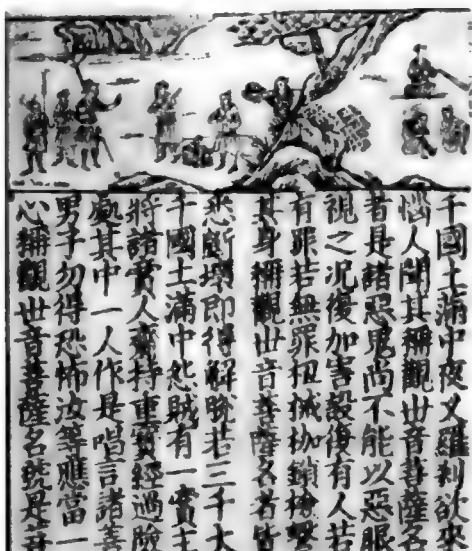 千國土滿中夜叉羅刹欲來
惱人聞其稱觀世音菩薩名
者是諸惡鬼尚不能以惡眼
視之況復加害設復有人若
有罪若無罪杻械枷鎖檢繫
其身稱觀世音菩薩名者皆
悉斷壞即得解脫若三千大
千國土滿中怨賊有一商主
將諸商人齎持重寶經過險
處其中一人作是唱言諸善
男子勿得恐怖汝等應當一
心稱觀世音菩薩名號是菩